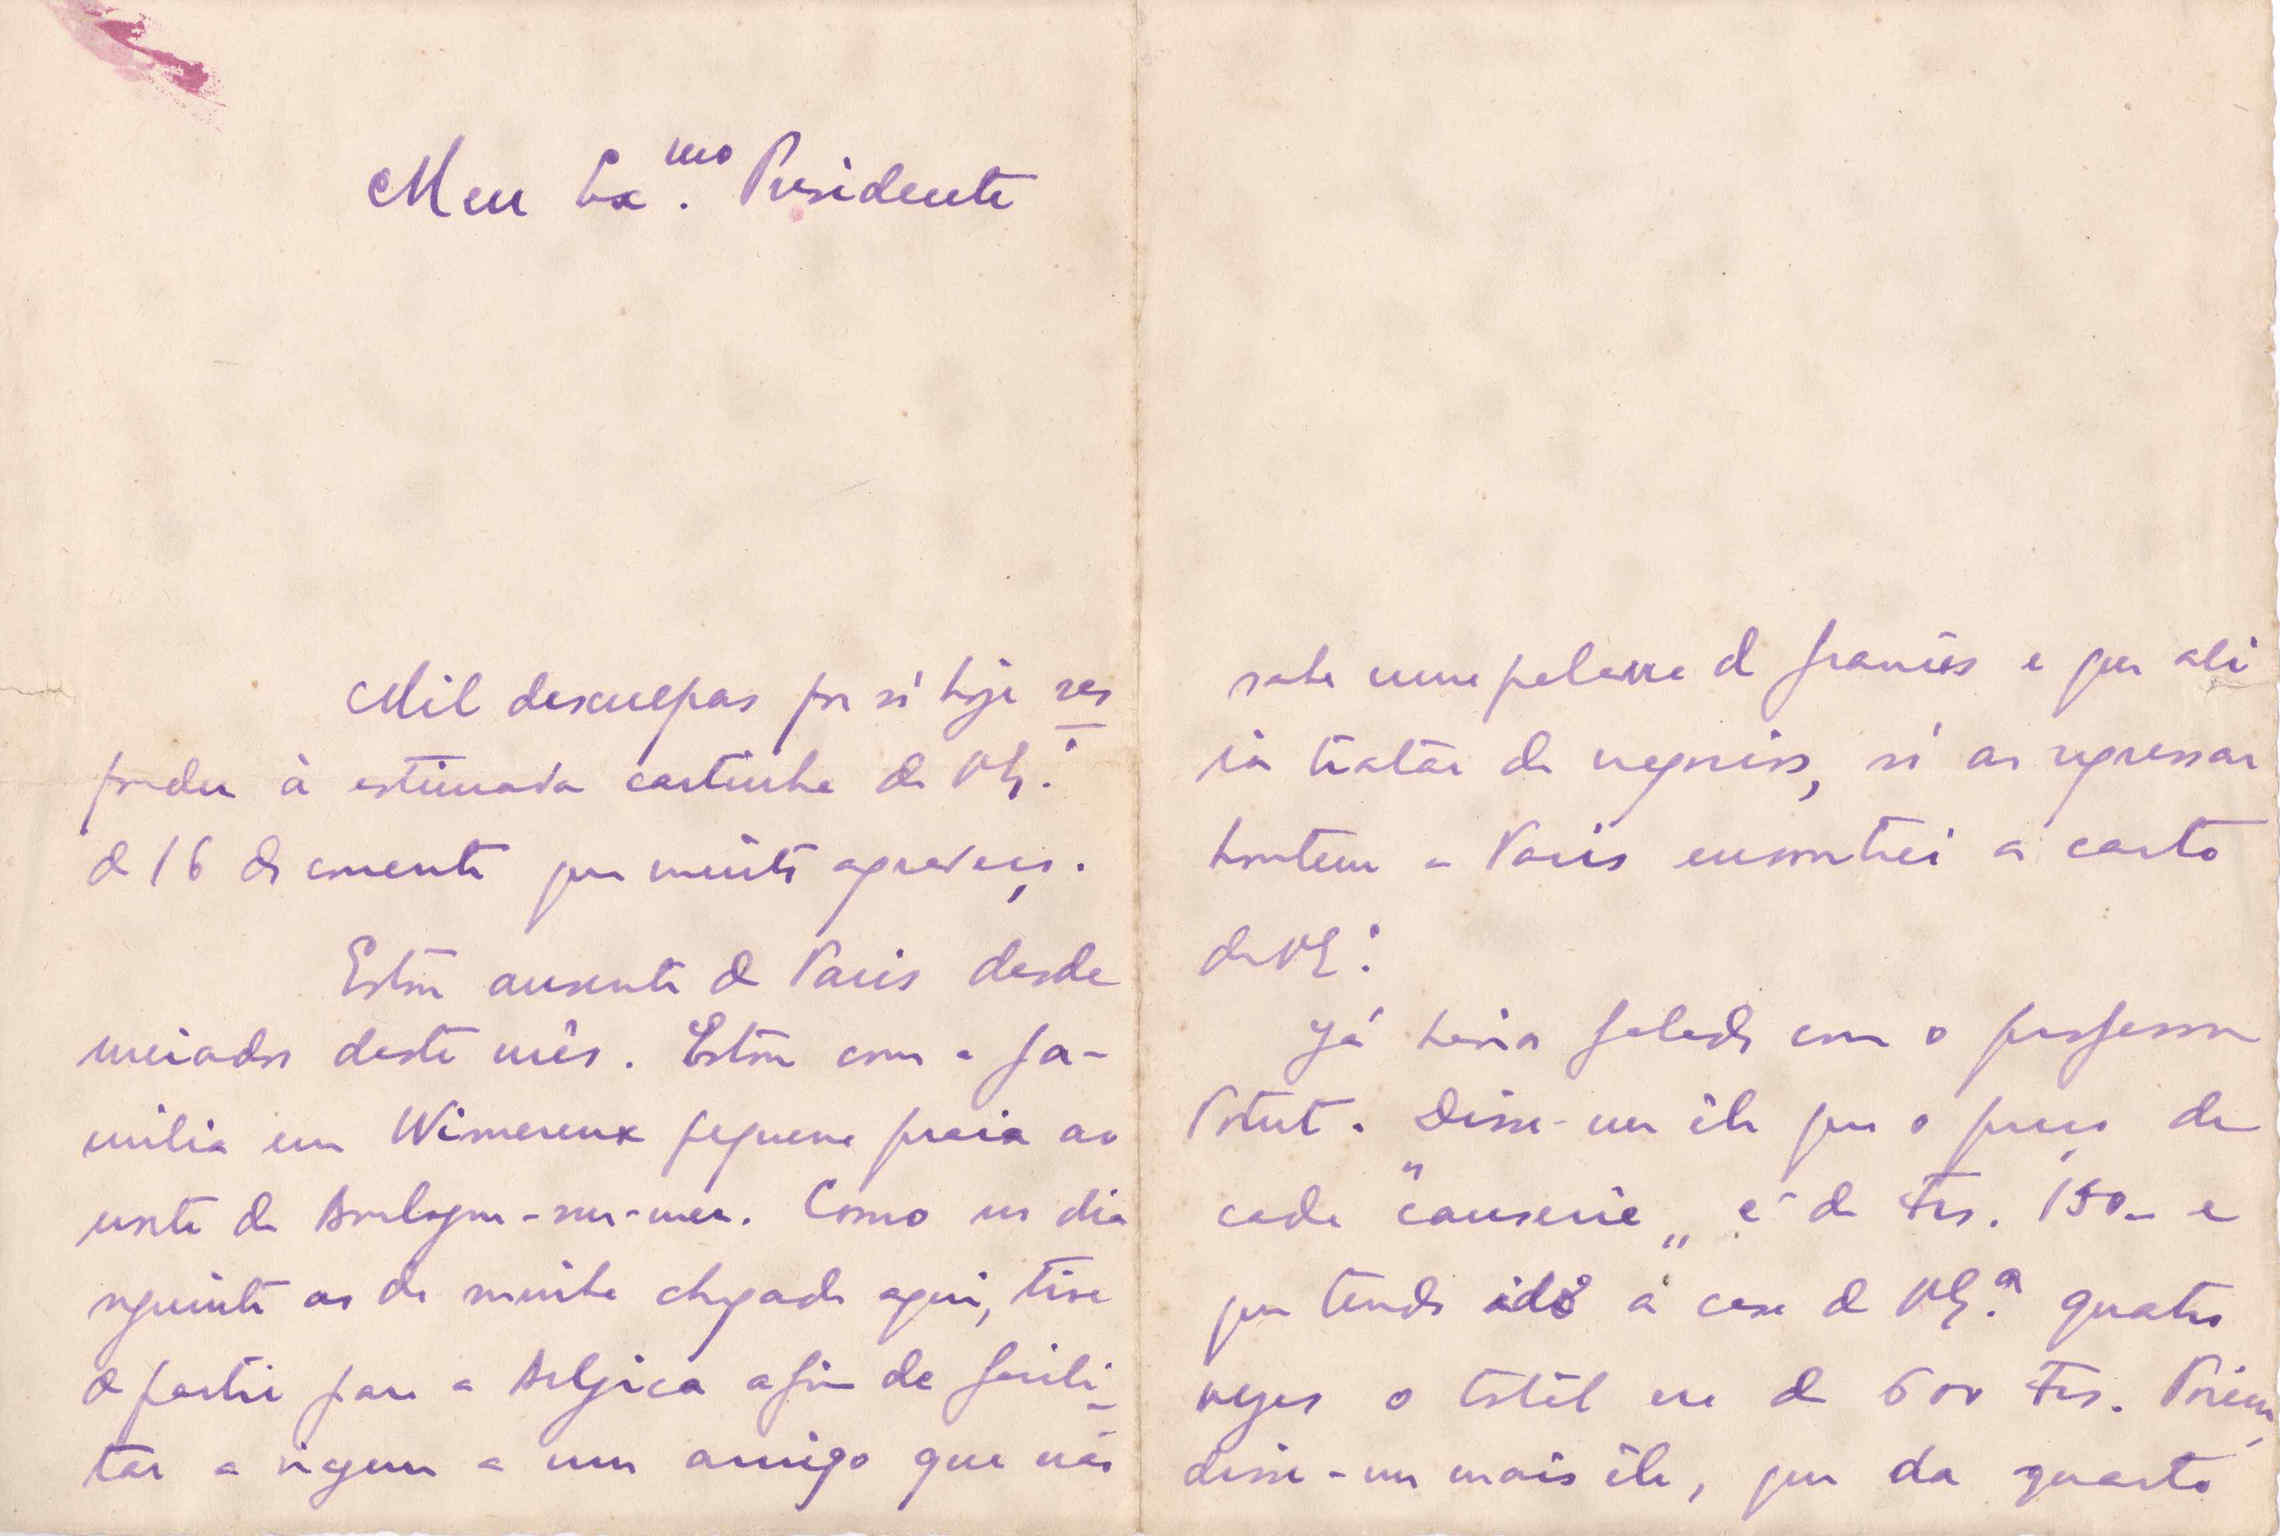 Meu Ex.mo Presidente
Mil desculpas por só hoje res
ponder à estimada cartinha de VE.ª
de 16 do corrente que muito agradeço.
Estou ausente de Paris desde
meiados deste mês. Estou com a fa-
milia em Wimereux pequena praia ao
norte de Boulogne-sur-mer. Como no dia
seguinte ao da minha chegada aqui, tive
de partir para a Belgica afim de facili-
tar a viagem a um amigo que não
sabe uma palavra de francês e que ali
ia tratar de negocios, só ao regressar
hontem a Paris encontrei a carta
de VE.ª
Já havia falado com o professor
Disse-me êle que o preço de
cada "causerie" é de Frs. 150- e
que tendo ido a casa de VE.ª quatro
vezes o total era de 600 Frs. Porém,
disse-me mais êle, que da quarta